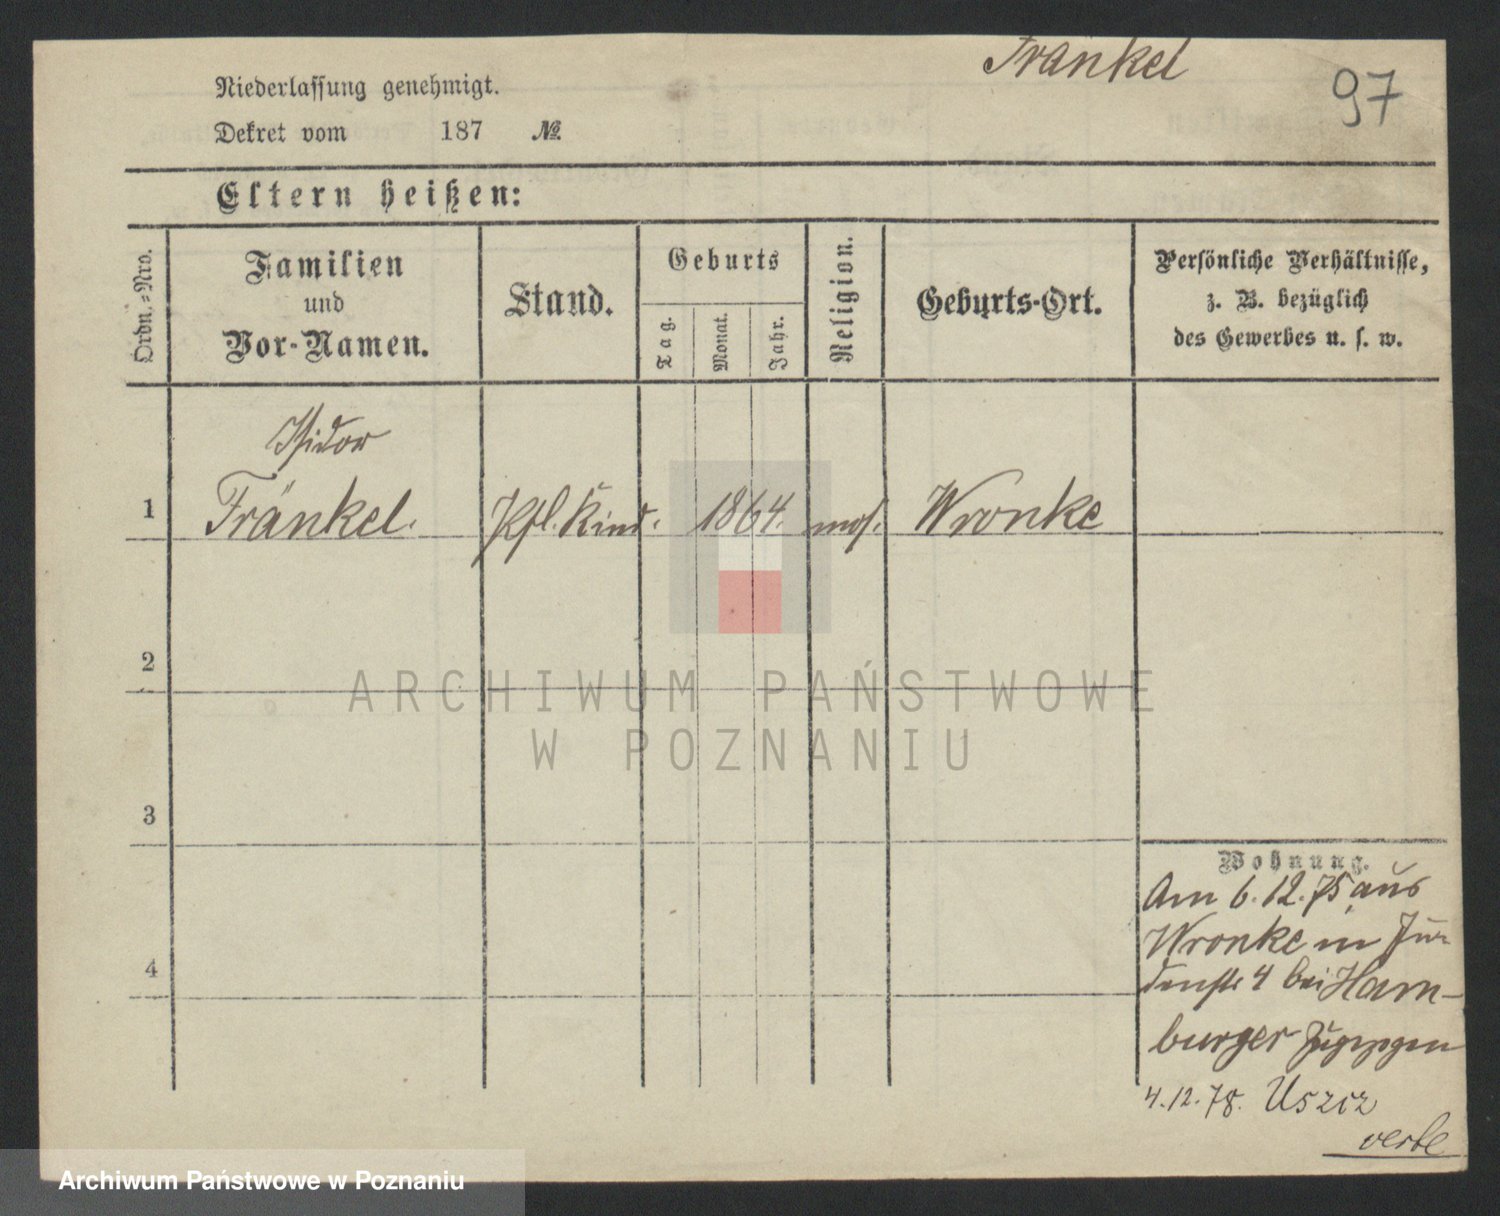 Fränkel
97
Niederlassung genehmigt.
Dekret vom 187 №
Eltern heißen:
Ordn.-Nro.
Familien
und
Vor-Namen.
Stand.
Geburts
Tag.
Monat.
Jahr.
Religion.
Geburts-Ort.
Persönliche Verhältnisse,
z. B. bezüglich
des Gewerbes u. s. w.
Isidor
1 Fränkel. Kfl. Kind. 1864. mos. Wronke
2
ARCHIWUM PAŃSTWOWE
W POZNANIU
3
Wohnung.
Am 6.12.75 aus
Wronke in Ju-
denstr 4 bei Ham-
burger zugezogen
4
4.12.78.
Archiwum Państwowe w Poznaniu